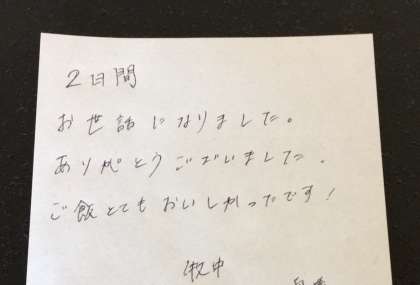 2日間
お世話になりました。
ありがとうございました.
ご飯とてもおいしかったです!